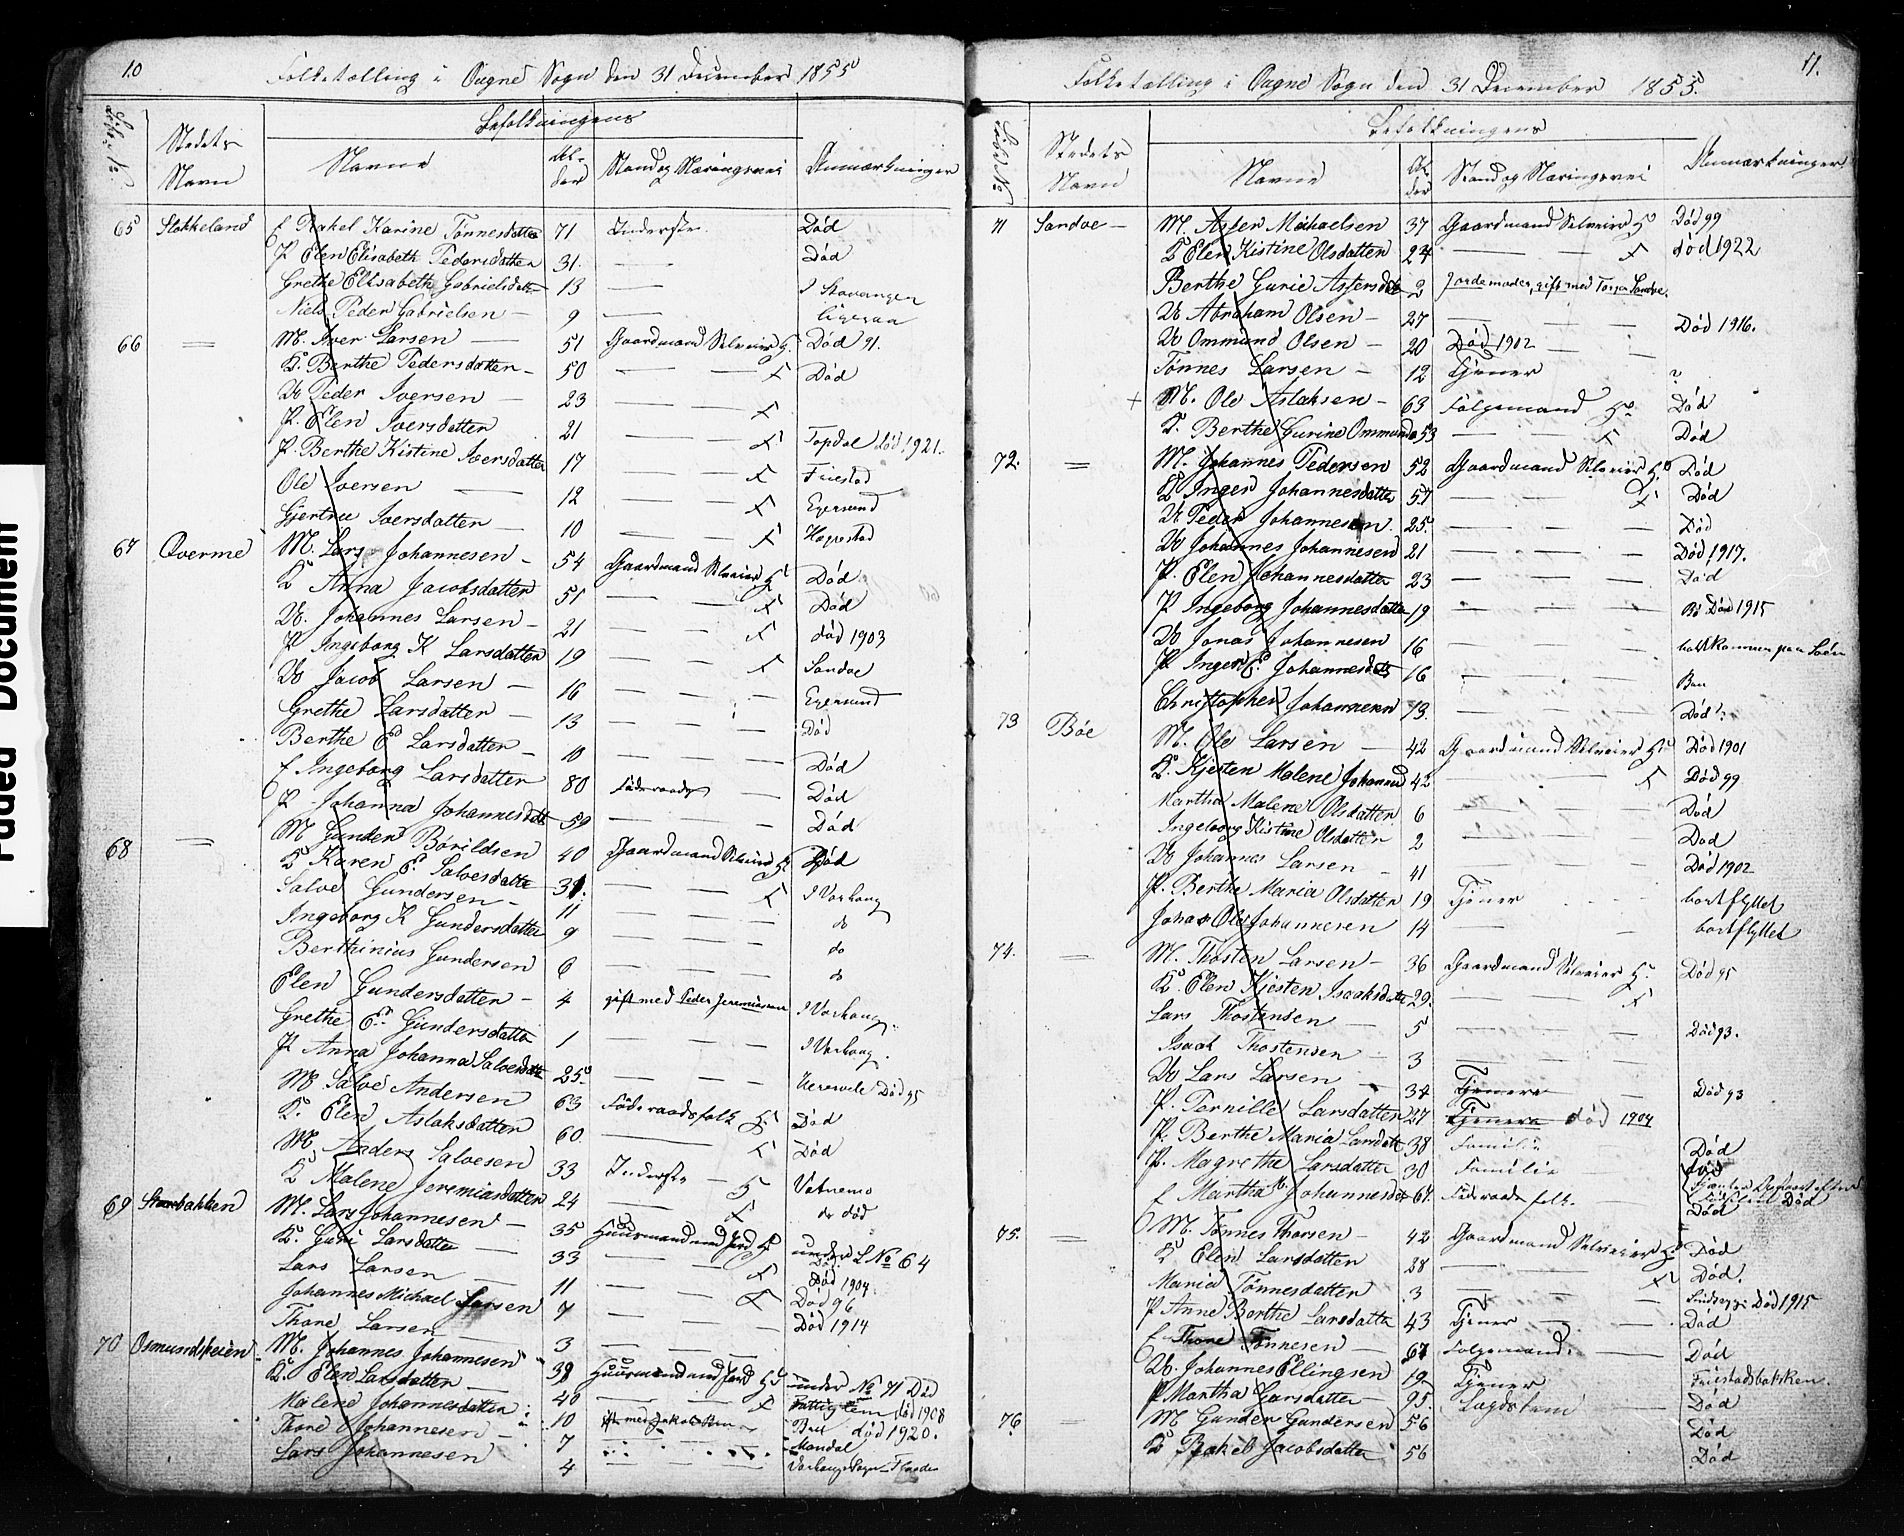 10
Folketælling i Ougne Sogn den 31 December 1855
Stedets Navn
Befolkningens
Navne
Alder
Stand og Næringsvei
Anmærkninger
65 Stokkeland f Rakel Karine Tønnesdatter 71 Inderste. Død
P Elen Elisabeth Pedersdatter 31. — — Død
Grethe Elisabeth Gabrielsdatt 13 — I Stavanger
Niels Peder Gabrielsen — 9 — ligesaa
66 — M. Iver Larsen — 51 Gaardmand Selveier G. Død 91.
K. Berthe Pedersdatter — 50 — — x Død
U Peder Iversen — 23 — — x
P. Elen Iversdatter 21 — — x Topdal død 1921.
P. Berthe Kistine Iversdatter 17 — — x Friestad
Ole Iversen — 12 — — x Egersund
Gjertrue Iversdatter — 10 — — x Høgstad
67 Qverme M. Lars Johannesen — 54 Gaardmand Selveier G Død
K Anna Jacobsdatter 51 — — x Død
U. Johannes Larsen — 21 — — x død 1903
P Ingeborg K Larsdatter 19 — — x Sandve
U Jacob Larsen — 16 — — — Egersund
Grethe Larsdatter — 13 — — Død
Berthe E Larsdatter — 10 — — — Død
f Ingeborg Larsdatter 80 Føderaads — Død
P Johanna Johannesdatt 59 — — — Død
68 — M Gunder Børildsen 40 Gaardmand Selveier G. Død
K Karen E. Salvesdatter 31. — — x I Varhoug
Salve Gundersen — 11 — — — do
Ingeborg K Gundersdatter 9 — — — do
Berthinius Gundersen 6 — — — do
Elen Gundersdatter — 4 gift med Peder Jeremiassen I Varhoug
Grethe E. Gundersdatter 1 — — — I Varhoug.
P Anna Johanna Salvesdatt 25 — — — Død 95
M Salve Andersen 63 Føderaadsfolk G Død
K. Elen Aslaksdatter 60 — — x Død
M Anders Salvesen 33 Inderste — G Vatnemo
K Malene Jeremiasdatter 24 — — x do død
69 Storbakken M. Lars Johannesen — 35 Huusmand med Jord G under L No 64
K. Guri Larsdatter — 33 — — x Død
Lars Larsen — 11 — — x Død 1904
Johannes Michael Larsen 7 — — Død 96
Thore Larsen — 3 — — Død 1914
70 Osmundskeien M. Johannes Johannesen 38 Huusmand med Jord G under No 71 Død
K. Elen Larsdatter — 40 — — x Fattiglem død 1908
Malene Johannesdatter 10 gift med Jakob Bru Bru død 1920.
Thore Johannesen — 7 Mandal
Lars Johannesen 4 — — Varhoug Sogn
11.
Folketælling i Ougne Sogn den 31 December 1855.
Stedets Navn
Befolkningens
Navne
Alder
Stand og Næringsvei
Anmærkninger
71 Sandve — M. Asser Michaelsen 37 Gaardmand Selveier G Død 99
K Elen Kistine Olsdatter 24 — — x død 1922
Berthe Gurie Assersdatter 2 Jordemoder, gift med Sandve.
U Abraham Olsen — 27 — — — Død 1916.
U Ommund Olsen — 20 Død 1902 — —
Tønnes Larsen — 12 Tjener ?
+ M. Ole Aslaksen — 63 Følgemand G Død
K. Berthe Gurine Ommundsd 53 — — x Død
72. — M. Johannes Pedersen 52 Gaardmand Selveier G Død
K Inger Johannesdatter 57 — — x Død
U Peder Johannesen. 25 — — — Død
U Johannes Johannesen 21 — — — Død 1917.
P. Elen Johannesdatter 23 — — — Død
P Ingeborg Johannesdatter 19 — — — Bø Død 1915
U Jonas Johannesen 16 — — — bortkommen paa Søen
P. Inger E. Johannesdatter 16 — — — Bru
Christopher Johannesen 13. — — — Død ?
73 Bøe M. Ole Larsen — 42 Gaardmand Selveier G Død 1901
K. Kjersten Malene Johannesd 42 — — x Død 99
Martha Malene Olsdatter 6 — — Død
Ingeborg Kistine Olsdatter 2 — — Død
U Johannes Larsen — 41 — — Død 1902
P. Berthe Maria Olsdatter 19 Tjener bortflyttet
Johan Ole Johannesen 14 — — bortflyttet
74. — M. Thosten Larsen — 36 Gaardmand Selveier G. Død 95
K. Elen Kjesten Isaaksdatter 29. — — x
Lars Thostensen — 5 — — — Død 93.
Isaak Thostensen — 3 — — —
U Lars Larsen — 34 Tjenere — Død 93
P. Pernille Larsdatter 27 Tjenere død 1904
P. Berthe Maria Larsdatt 38 Familie Død
P. Magrethe Larsdatter 30 Familie Død
f Martha Johannesd 67. Føderaadsfolk. — Død
75. — M. Tønnes Thorsen — 42 Gaardmand Selveier G Død
K Elen Larsdatter 28 — — x Død.
Maria Tønnesdatter 3 — — — Død 1915
P Anne Berthe Larsdatter 43 Tjener — Død
f Thore Tønnesen — 67 Følgemand. — Død
U. Johannes Ellingsen 19 Tjener Friestadbakken.
P Martha Larsdatter — 95. Lægdslem — Død
76 M Gunder Gundersen 56 Død
K Rakel Jacobsdatter 56 Død
Faded Document